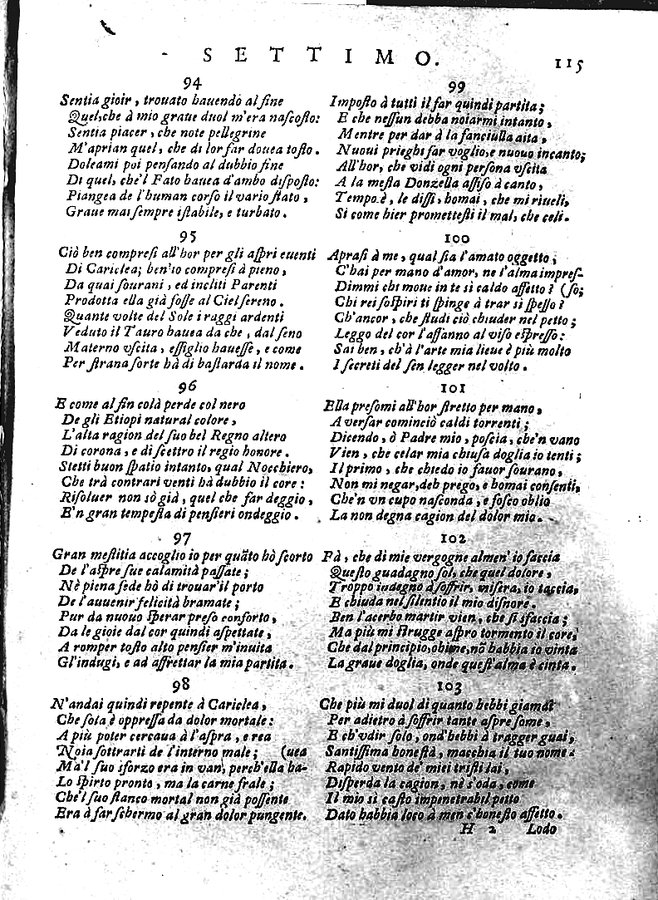 SETTIMO. 115
94
Sentia gioir, trouato hauendo al fine
Quel, che à mio graue duol m'era nascosto:
Sentia piacer, che note pellegrine
M'aprian quel, che di lor far douea tosto.
Doleami poi pensando al dubbio fine
Di quel, che'l Fato hauea d'ambo disposto:
Piangea de l'human corso il vario stato,
Graue mai sempre istabile, e turbato.
95
Ciò ben compresi all'hor per gli aspri euenti
Di Cariclea; ben'io compresi à pieno,
Da quai sourani, ed incliti Parenti
Prodotta ella già fosse al Ciel sereno.
Quante volte del Sole i raggi ardenti
Veduto il Tauro hauea da che, dal seno
Materno vscita, essiglio hauesse, e come
Per strana sorte hà di bastarda il nome.
96
E come al fin colà perde col nero
De gli Etiopi natural colore,
L'alta ragion del suo bel Regno altero
Di corona, e di scettro il regio honore.
Stetti buon spatio intanto, qual Nocchiero,
Che trà contrari venti hà dubbio il core:
Risoluer non sò già, quel che far deggio,
E'n gran tempesta di pensieri ondeggio.
97
Gran mestitia accoglio io per quãto hò scorto
De l'aspre sue calamità passate;
Nè piena fede hò di trouar'il porto
De l'auuenir felicità bramate;
Pur da nuouo sperar preso conforto,
Da le gioie dal cor quindi aspettate,
A romper tosto alto pensier m'inuita
Gl'indugi, e ad affrettar la mia partita.
98
N'andai quindi repente à Cariclea,
Che sola è oppressa da dolor mortale:
A più poter cercaua à l'aspra, e rea
Noia sottrarti de l'interno male; (uea
Ma'l suo sforzo era in van, perch'ella ha-
Lo spirto pronto, ma la carne frale;
Che'l suo stanco mortal non già possente
Era à far schermo al gran dolor pungente.
99
Imposto à tutti il far quindi partita;
E che nessun debba noiarmi intanto,
Mentre per dar à la fanciulla aita,
Nuoui prieghi far voglio, e nuouo incanto;
All'hor, che vidi ogni persona vscita
A la mesta Donzella assiso à canto,
Tempo è, le dissi, homai, che mi riueli,
Si come hier promettesti il mal, che celi.
100
Aprasi à me, qual sia l'amato oggetto;
C'hai per mano d'amor, ne l'alma impres-
Dimmi chi moue in te si caldo affetto? (so;
Chi rei sospiri ti spinge à trar sì spesso?
Ch'ancor, che studi ciò chiuder nel petto;
Leggo del cor l'affanno al viso espresso:
Sai ben, ch'à l'arte mia lieue è più molto
I secreti del sen legger nel volto.
101
Ella presomi all'hor stretto per mano,
A versar cominciò caldi torrenti;
Dicendo, ò Padre mio, poscia, che'n vano
Vien, che celar mia chiusa doglia io tenti;
Il primo, che chiedo io fauor sourano,
Non mi negar, deh prego, e homai consenti,
Che'n vn cupo nasconda, e fosco oblio
La non degna cagion del dolor mio.
102
Fà, che di mie vergogne almen' io faccia
Questo guadagno sol, che quel dolore,
Troppo indegno à soffrir, misera, io taccia,
E chiuda nel silentio il mio disnore.
Ben l'acerbo martir vien, che si sfaccia;
Ma più mi strugge aspro tormento il core,
Che dal principio, ohime, nõ habbia io vinta
La graue doglia, onde quest'alma è cinta.
103
Che più mi duol di quanto hebbi giamai
Per adietro à soffrir tante aspre some,
E ch'vdir solo, ond'hebbi à tragger guai,
Santissima honestà, macchia il tuo nome:
Rapido vento de' miei tristi lai,
Disperda la cagion, nè s'oda, come
Il mio si casto impenetrabil petto
Dato habbia loco à men c'honesto affetto.
H 2 Lodo